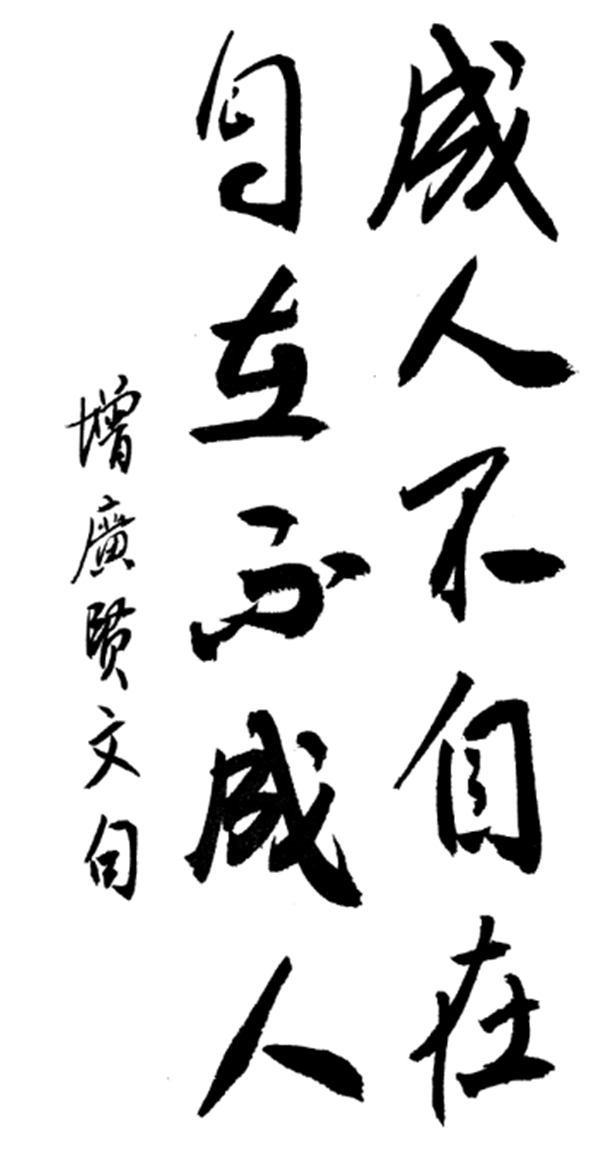 成人不自在
自在不成人
增廣賢文句